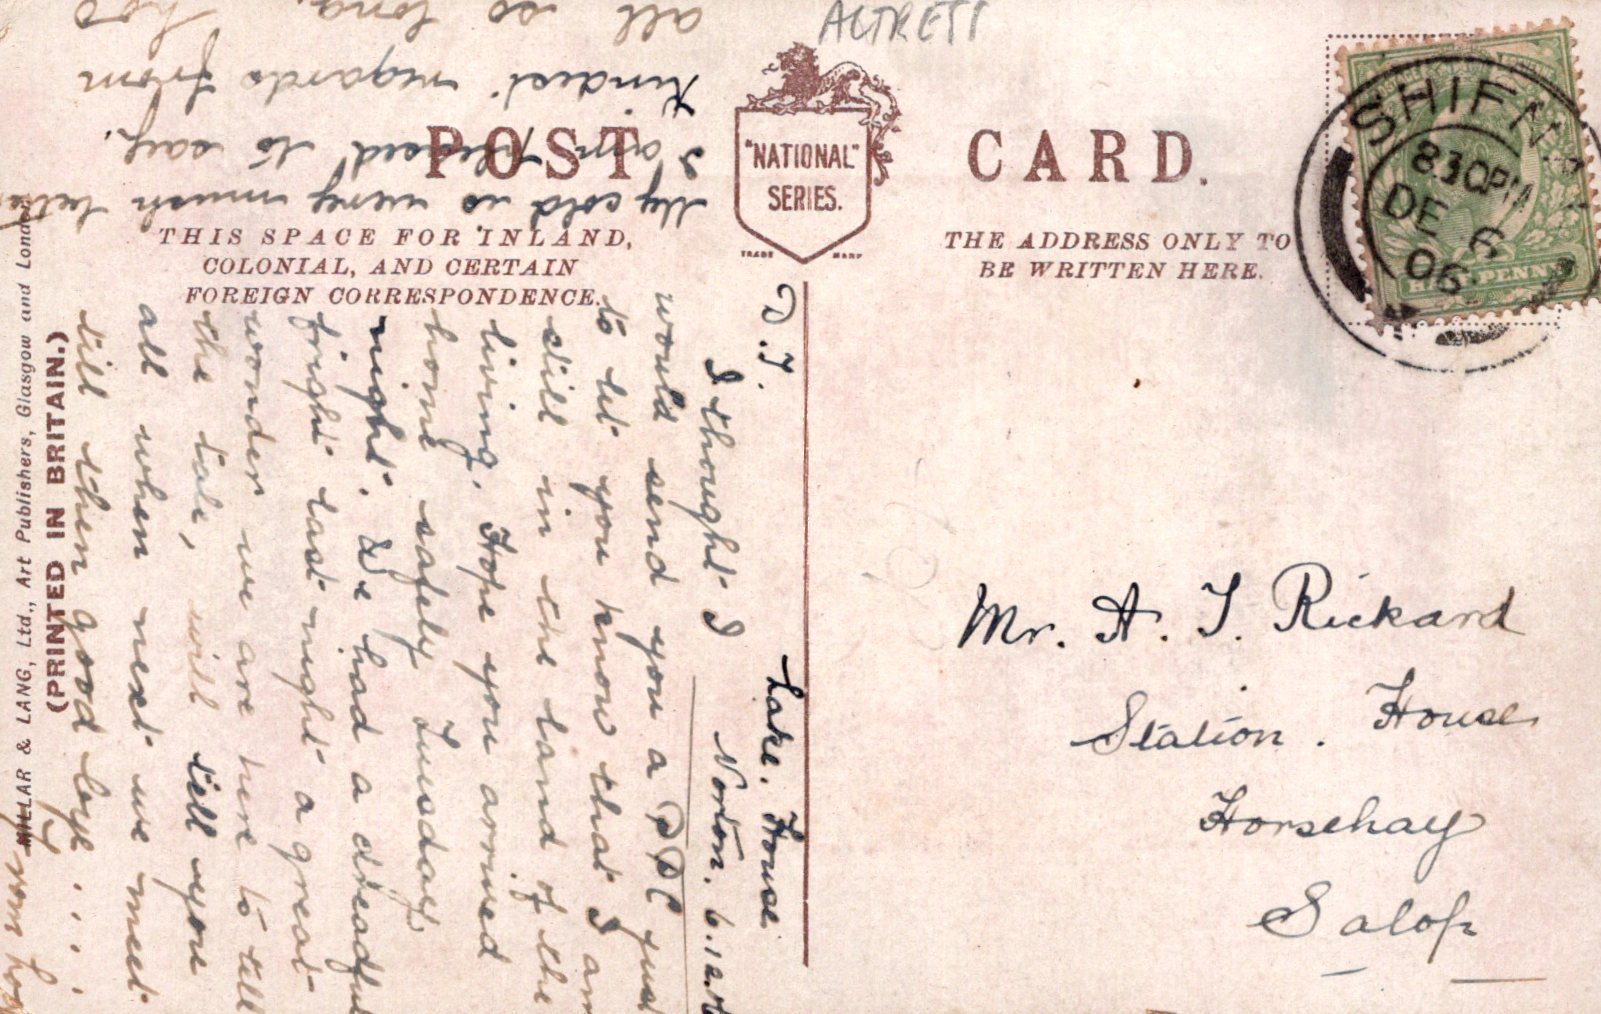 ALTRETT
POST CARD.
"NATIONAL"
SERIES.
TRADE MARK
THIS SPACE FOR INLAND,
COLONIAL, AND CERTAIN
FOREIGN CORRESPONDENCE.
THE ADDRESS ONLY TO
BE WRITTEN HERE.
SHIFNAL
8 30 PM
DE 6
06
HALFPENNY
MILLAR & LANG, Ltd., Art Publishers, Glasgow and London.
(PRINTED IN BRITAIN.)
Mr. A. T. Rickard
Station. House
Horsehay
Salop
Lake. House.
Norton. 6.12.06
D.T.
I thought I
would send you a PPC just
to let you know that I am
still in the land of the
living. Hope you arrived
home safely Tuesday
night. We had a dreadful
fright last night a great
wonder we are here to tell
the tale, will tell you
all when next we meet
till then good bye
My cold is very much better
I am pleased to say.
Kindest regards from
all so long.